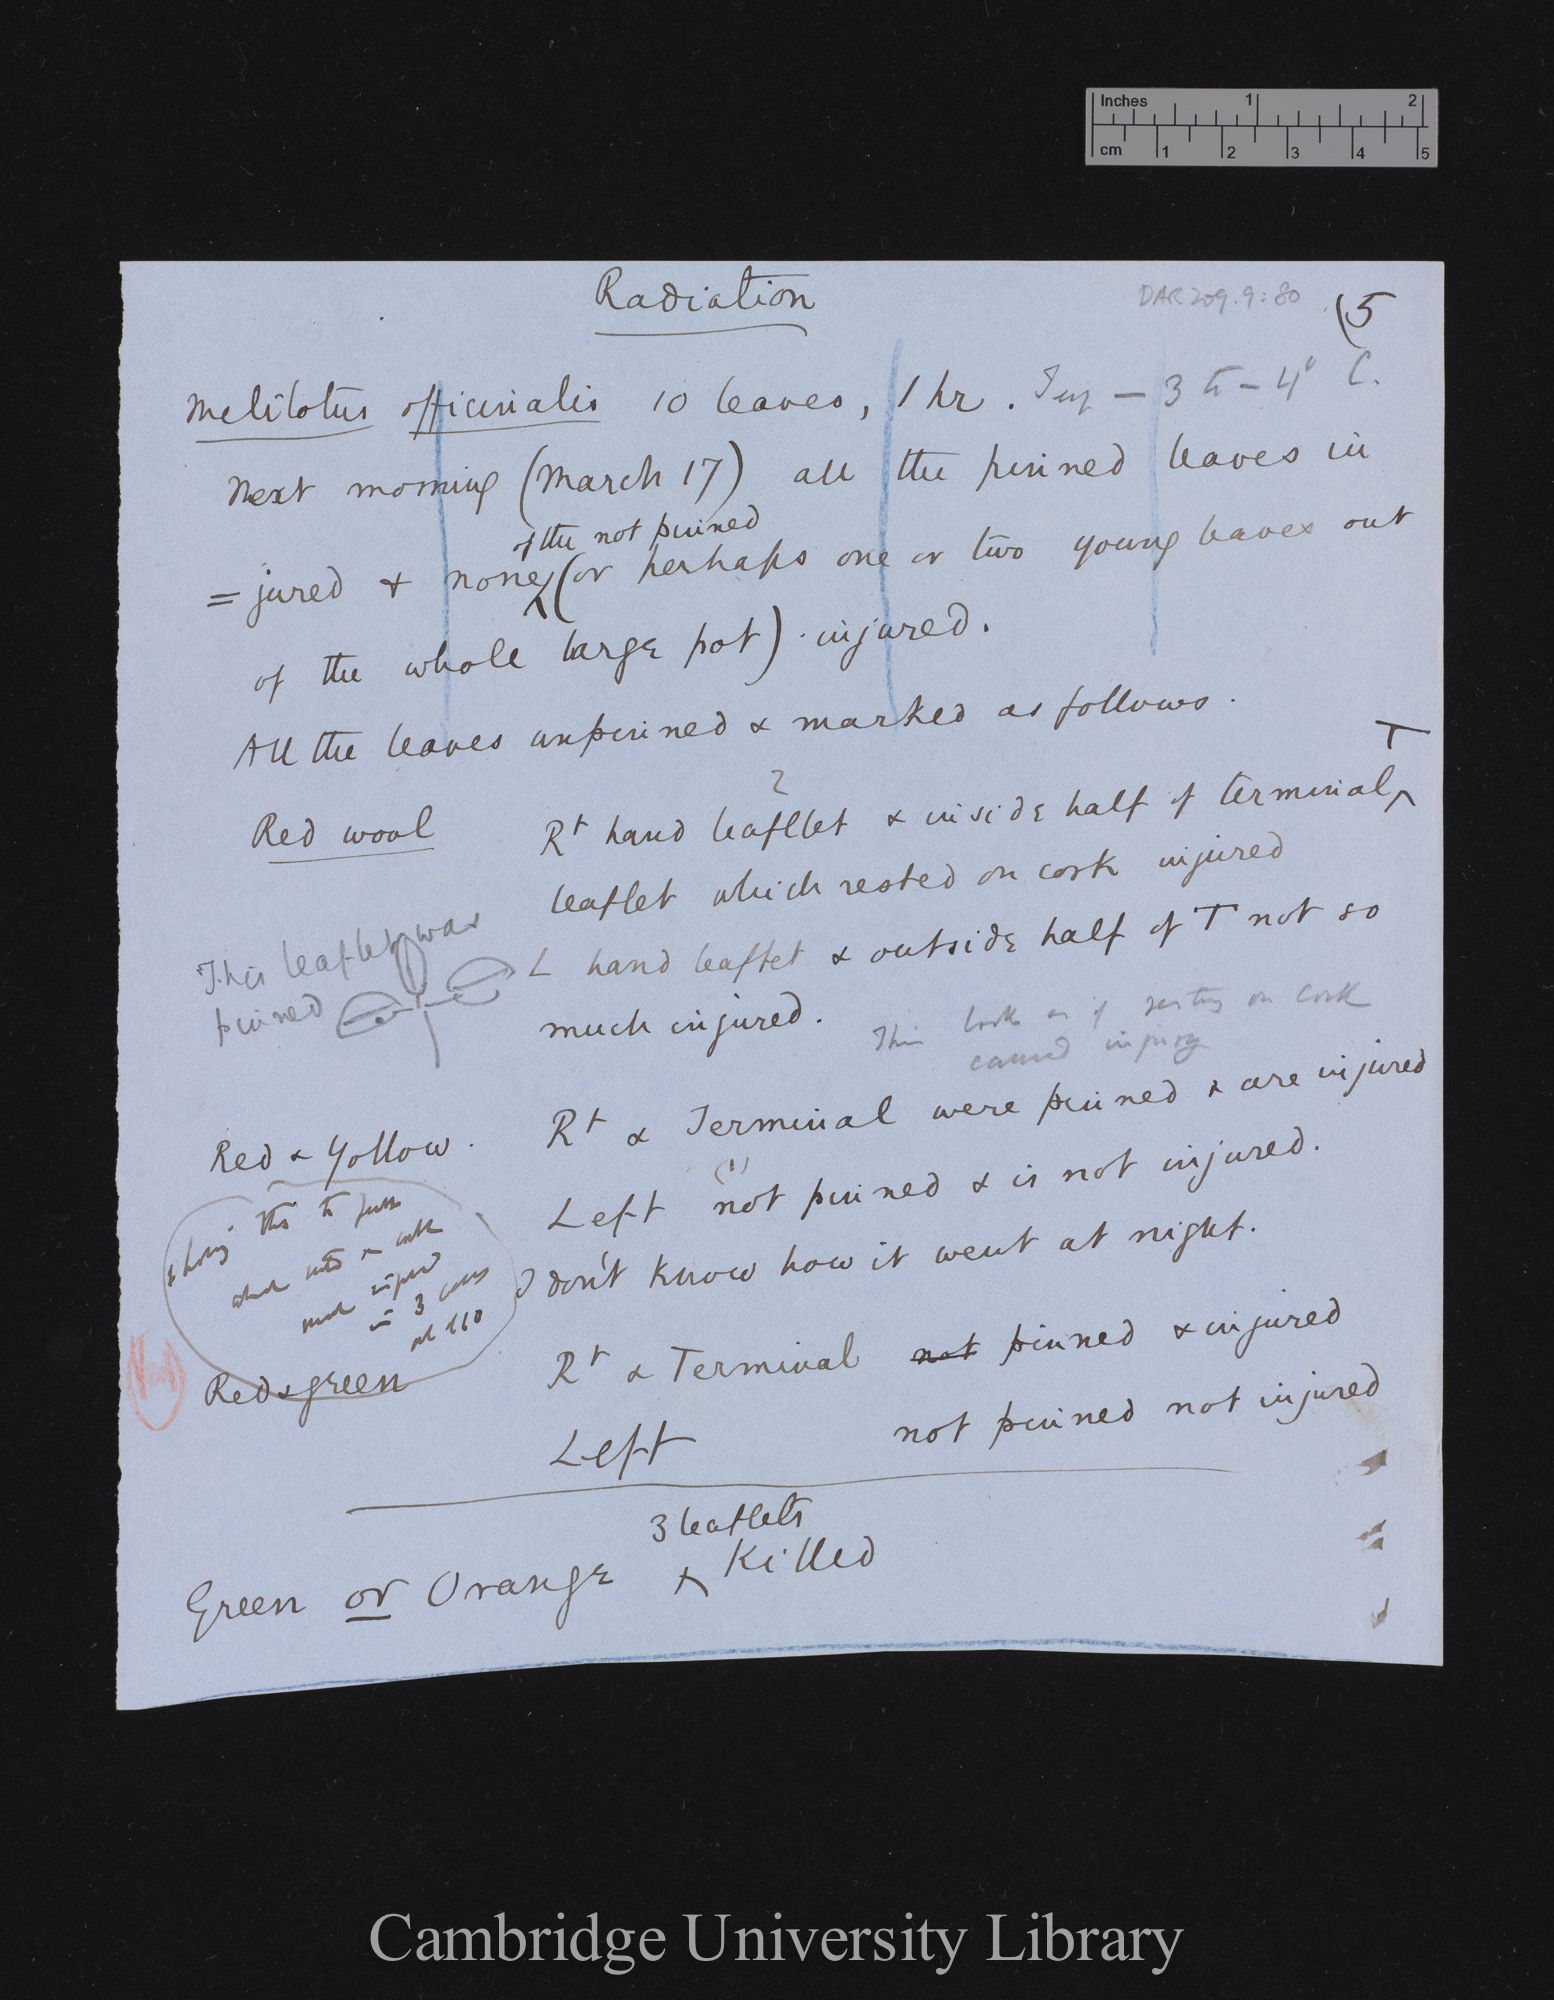 Inches 1 2
cm 1 2 3 4 5
Radiation
DAR 209.9:80
(5
Melilotus officinalis 10 leaves, 1 hr. Temp – 3 to – 4° C.
Next morning (March 17) all the pinned leaves in
=jured & none (or perhaps one or two young leaves out
of the not pinned
of the whole large pot) injured.
All the leaves unpinned & marked as follows.
T
Red wool
?
Rt hand leafllet & inside half of terminal
leaflet which rested on cork injured
This leaflet was
pinned
L hand leaflet & outside half of T not so
much injured.
This looks as if resting on cork
caused injury
Red & Yollow.
Rt & Terminal were pinned & are injured
(1)
Left not pinned & is not injured.
I don't know how it went at night.
this to
in 3
Red & green
Rt & Terminal not pinned & injured
Left not pinned not injured
3 leaflets
Green or Orange Killed
Cambridge University Library